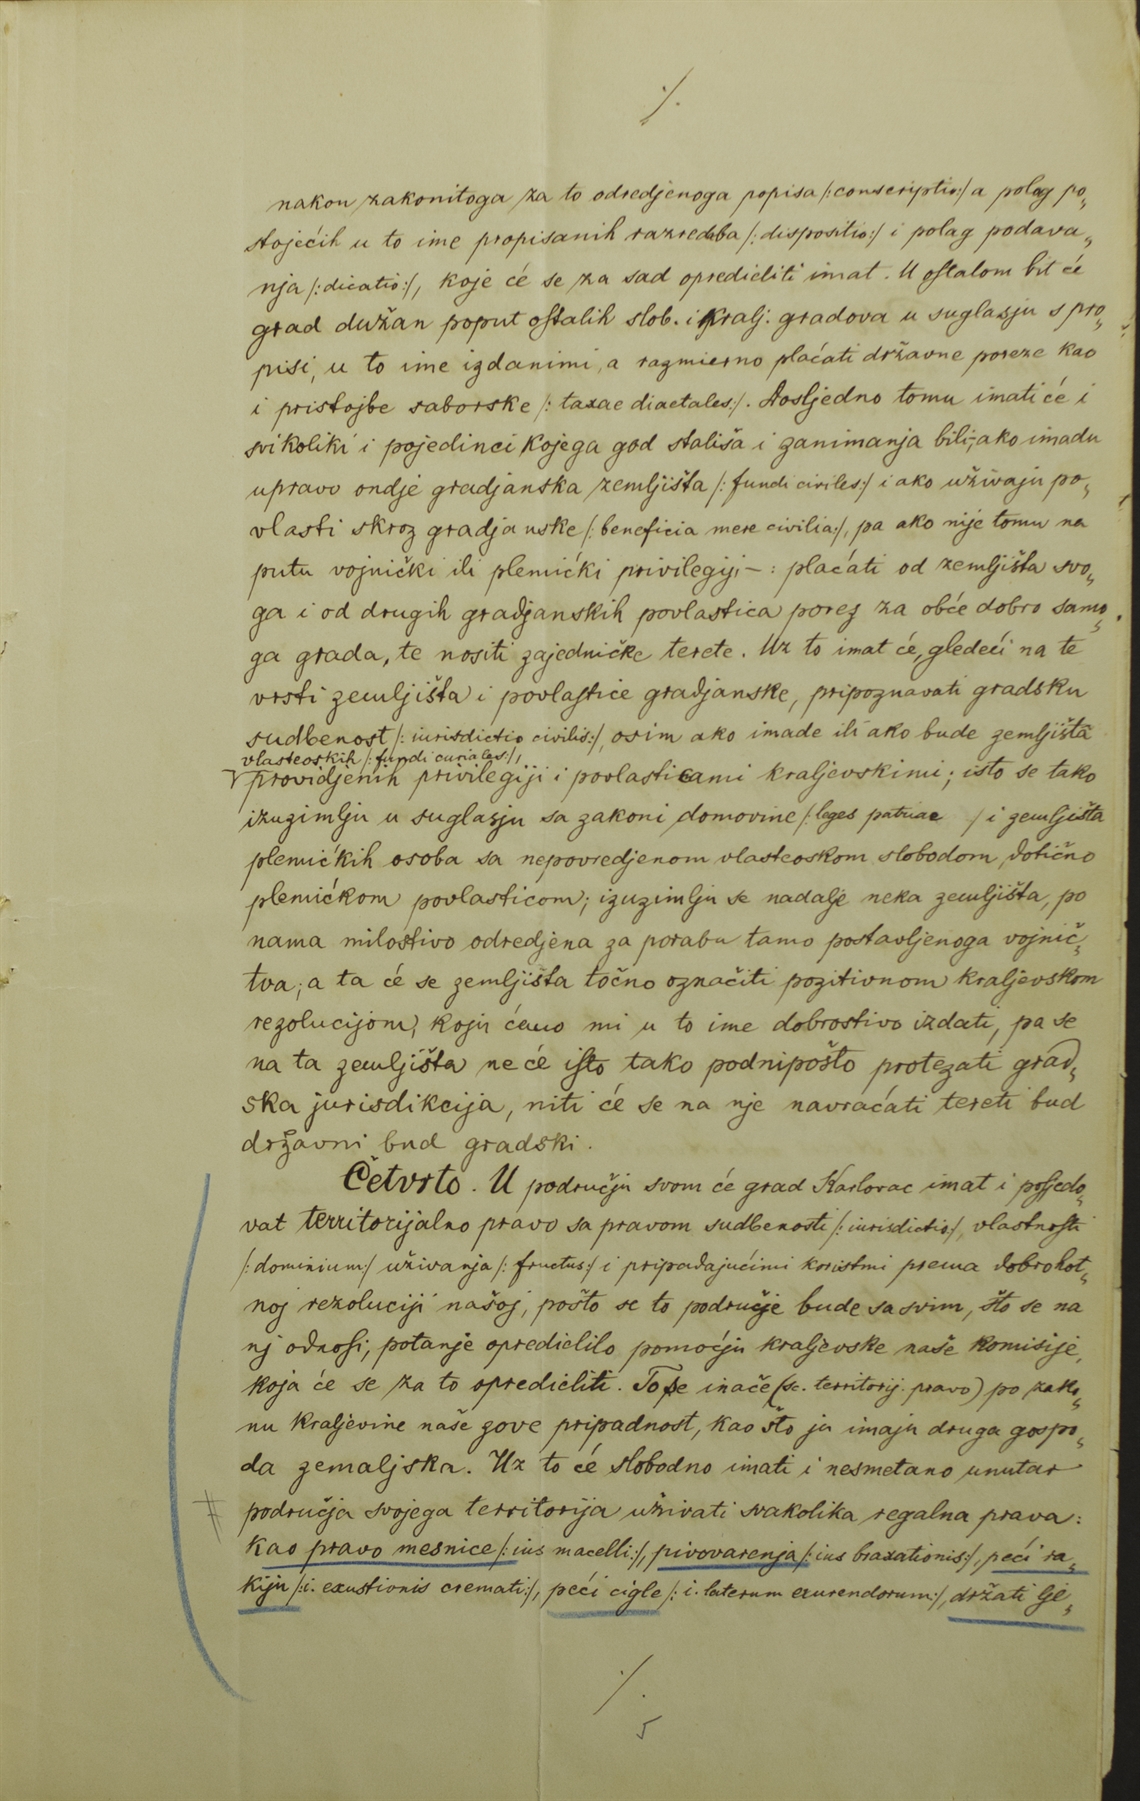 ./.
nakon zakonitoga za to odredjenoga popisa /:conscriptio:/ a polag po„
stojećih u to ime propisanih razredaba /:dispositio:/ i polag podava„
nja /:dicatio:/, koje će se za sad opredieliti imat. U ostalom bit će
grad dužan poput ostalih slob. i kralj. gradova u suglasju s pro„
pisi, u to ime izdanimi, a razmierno plaćati državne poreze kao
i pristojbe saborske /: taxae diaetales:/. Dosljedno tomu imati će i
svikoliki i pojedinci kojega god stališa i zanimanja bili, ako imadu
upravo ondje gradjanska zemljišta /: fundi civiles:/ i ako uživaju po„
vlasti skroz gradjanske /: beneficia mere civilia:/, pa ako nije tomu na
putu vojnički ili plemićki privilegij, —: plaćati od zemljišta svo„
ga i od drugih gradjanskih povlastica porez za obće dobro samo„
ga grada, te nositi zajedničke terete. Uz to imat će, gledeći na te
vrsti zemljišta i povlastice gradjanske, pripoznavati gradsku
sudbenost /: iurisdictio civilis:/, osim ako imade ili ako bude zemljišta
vlasteoskih /: fundi curiales:/,
providjenih privilegiji i povlasticami kraljevskimi; isto se tako
izuzimlju u suglasju sa zakoni domovine /: leges patriae / i zemljišta
plemićkih osoba sa nepovredjenom vlasteoskom slobodom, dotično
plemićkom povlasticom; izuzimlju se nadalje neka zemljišta, po
nama milostivo odredjena za porabu tamo postavljenoga vojnič„
tva; a ta će se zemljišta točno označiti pozitivnom kraljevskom
rezolucijom, koju ćemo mi u to ime dobrostivo izdati, pa se
na ta zemljišta ne će isto tako podnipošto protezati grad„
ska jurisdikcija, niti će se na nje navraćati tereti bud
državni bud gradski.
Četvrto. U području svom će grad Karlovac imat i posjedo„
vat territorijalno pravo sa pravom sudbenosti /: iurisdictio:/, vlastnosti
/: dominium:/ uživanja /: fructus:/ i pripadajućimi koristmi prema dobrohot„
noj rezoluciji našoj, pošto se to područje bude sasvim, što se na
nj odnosi, potanje opredielilo pomoćju kraljevske naše komisije,
koja će se za to opredieliti. To se inače (sc. territorij. pravo) po zako„
nu kraljevine naše zove pripadnost, kao što ju imaju druga gospo„
da zemaljska. Uz to će slobodno imati i nesmetano unutar
područja svojega territorija uživati svakolika regalna prava:
kao pravo mesnice /: ius macelli:/, pivovarenja /: ius braxationis:/, peći ra„
kiju /: i. exustionis cremati:/, peći cigle /: i. laterum exurendorum:/, držati lje„
./.
5